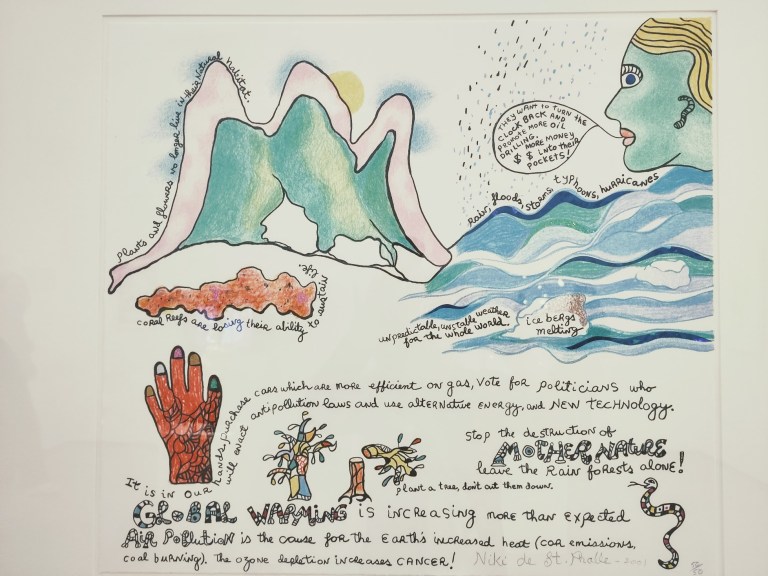 Plants and flowers no longer live in their natural habitat.
THEY WANT TO TURN THE
CLOCK BACK AND
PROMOTE MORE OIL
DRILLING.
MORE MONEY
$ $ INto their
POCKETS!
Rain, floods, storms, typhoons, hurricanes
coral Reefs are losing their ability to sustain life.
unpredictable, unstable weather
for the whole world.
ice bergs
melting
It is in our hands. purchase cars which are more efficient on gas, vote for politicians who
will enact antipollution laws and use alternative energy, and NEW TECHNOLOGY.
Stop the destruction of
MOTHER NATURE
leave the Rain forests alone!
plant a tree, don't cut them down.
GLOBAL WARMING is increasing more than expected
Air Pollution is the cause for the Earth's increased heat (car emissions,
coal burning). The ozone depletion increases CANCER!
Niki de St. Phalle - 2001